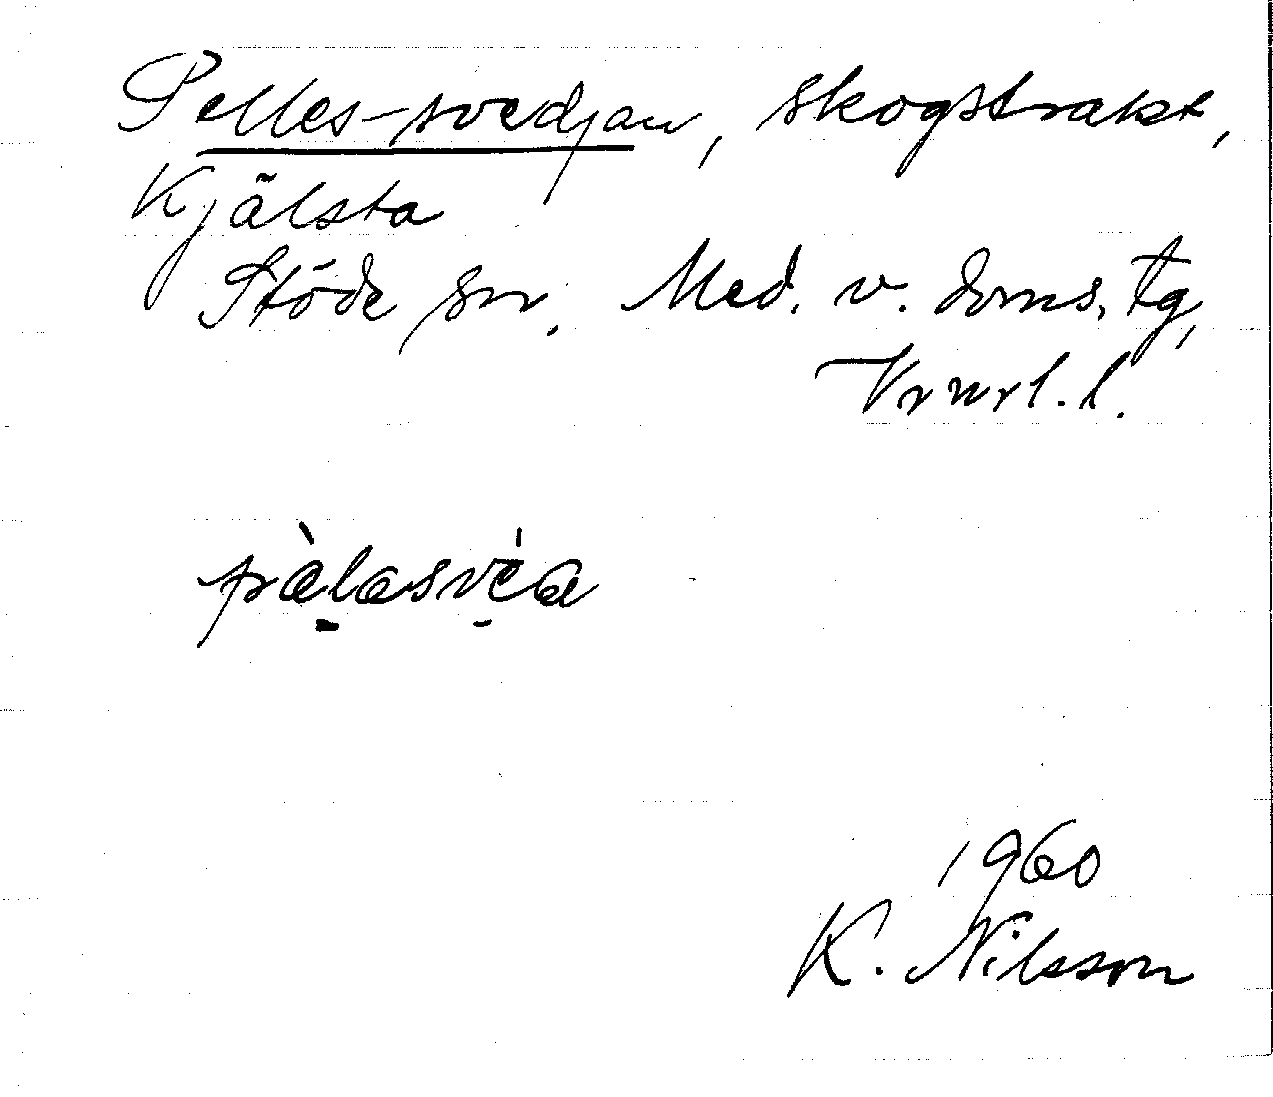 Pelles-svedjan, skogstrakt,
Kjälsta
Stöde sn. Med. v. doms. tg,
Vrnrl. l.
pàlasvéa
1960
K. Nilsson